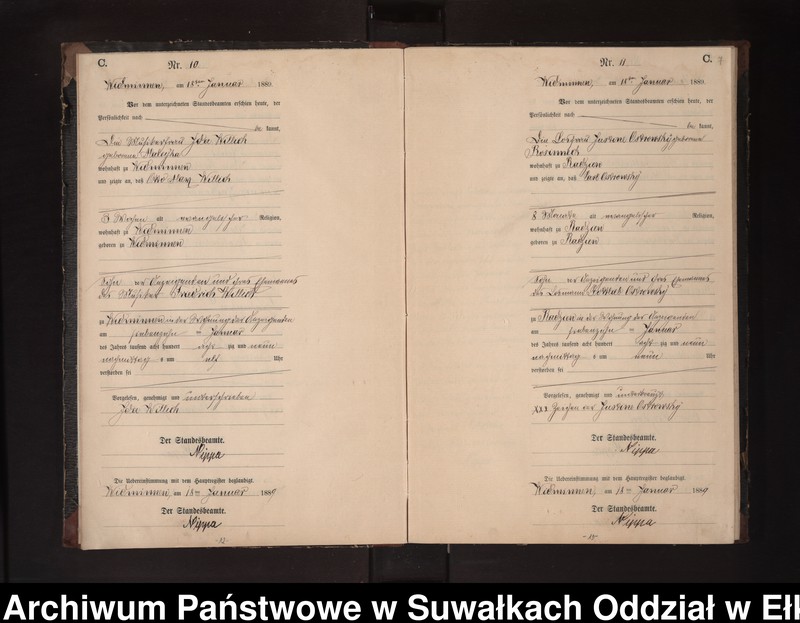 C.
Nr. 10
Widminnen, am 18ten Januar 1889.
Vor dem unterzeichneten Standesbeamten erschien heute, der
Persönlichkeit nach
be kannt,
Ida Willich
geborene
wohnhaft zu Widminnen
und zeigte an, daß Otto Max Willich
3 Wochen alt evangelischer Religion,
wohnhaft zu Widminnen
geboren zu Widminnen
Sohn der Anzeigenden und ihres Ehemannes
des Friedrich Willich
zu Widminnen in der Wohnung der Anzeigenden
am siebenzehn ten Januar
des Jahres tausend acht hundert acht zig und neun
nachmittag s um Uhr
verstorben sei
Vorgelesen, genehmigt und unterschrieben
Ida Willich
Der Standesbeamte.
Nippa
Die Uebereinstimmung mit dem Hauptregister beglaubigt.
Widminnen, am 18ten Januar 1889
Der Standesbeamte.
Nippa
C.
Nr. 11
Widminnen, am 18ten Januar 1889.
Vor dem unterzeichneten Standesbeamten erschien heute, der
Persönlichkeit nach
be kannt,
Die Ostrowsky geborene
wohnhaft zu Radzien
und zeigte an, daß Carl Ostrowsky
8 alt evangelischer Religion,
wohnhaft zu Radzien
geboren zu Radzien
Sohn der Anzeigenden und ihres Ehemannes
des Losmann Gottlieb Ostrowsky
zu Radzien in der Wohnung der Anzeigenden
am siebenzehn ten Januar
des Jahres tausend acht hundert acht zig und neun
nachmittag s um neun Uhr
verstorben sei
Vorgelesen, genehmigt und unterkreuzt
XXX Zeichen der Ostrowsky
Der Standesbeamte.
Nippa
Die Uebereinstimmung mit dem Hauptregister beglaubigt.
Widminnen, am 18ten Januar 1889
Der Standesbeamte.
Nippa
Archiwum Państwowe w Suwałkach Oddział w Ełk